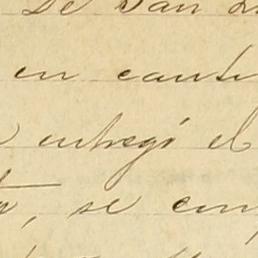 De San
en canti
entregó el
se com